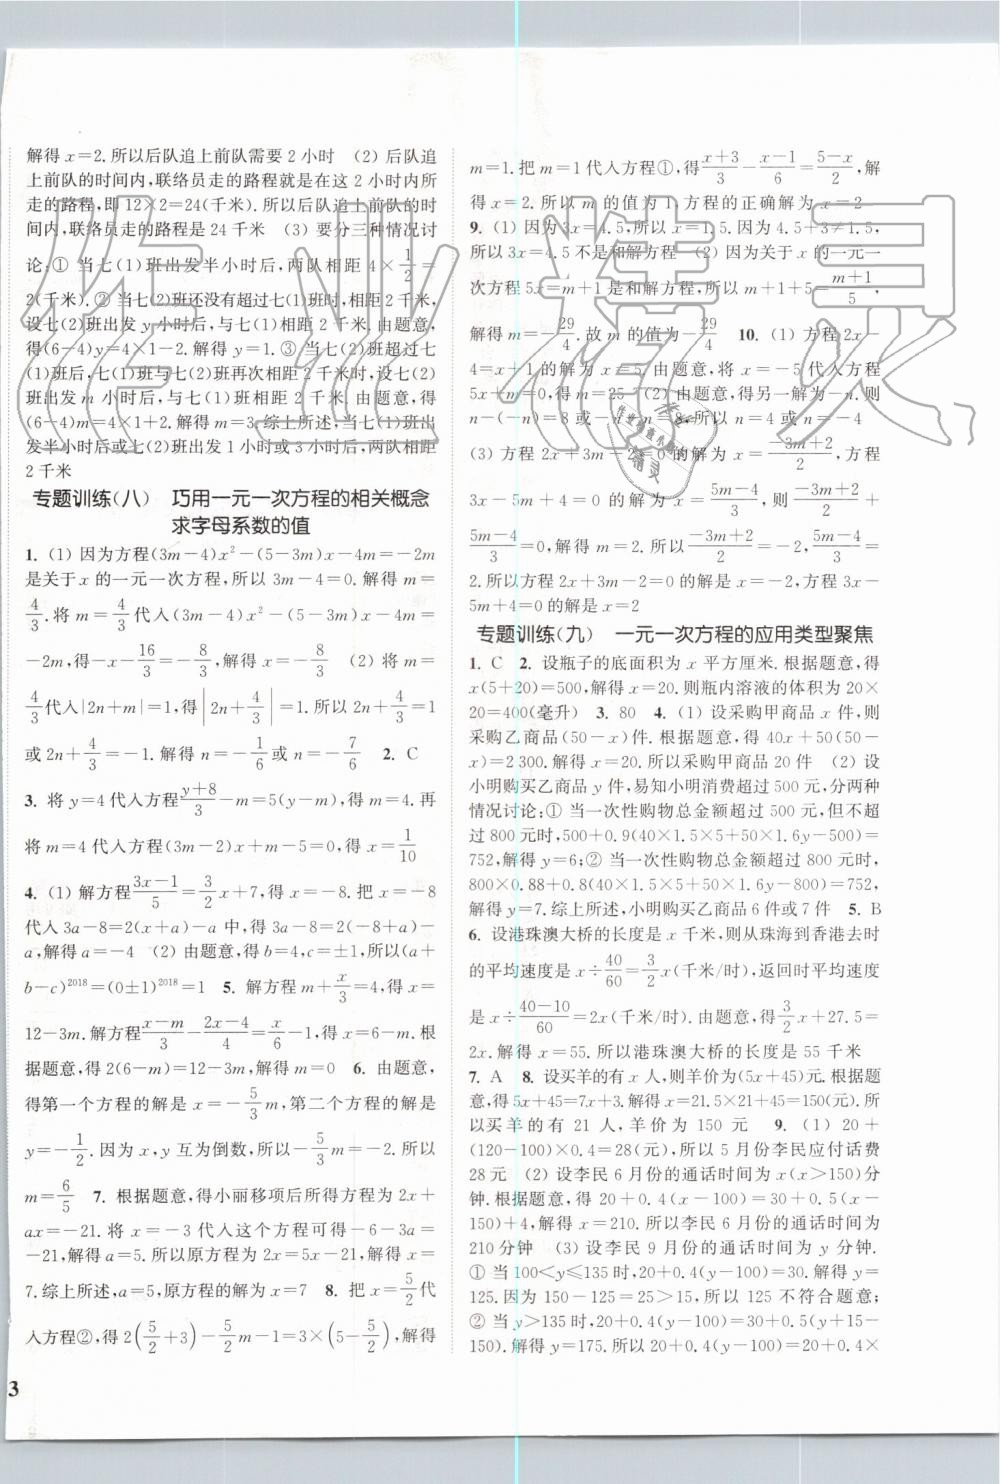 解得 x=2. 所以后队追上前队需要 2 小时 (2) 后队追
上前队的时间内,联络员走的路程就是在这 2 小时内所
走的路程,即 12×2=24(千米). 所以后队追上前队的时
间内,联络员走的路程是 24 千米 (3) 要分三种情况讨
论:① 当七(1)班出发半小时后,两队相距 4×1/2=
2(千米). ② 当七(2)班还没有超过七(1)班时,相距 2 千米,
设七(2)班出发 y 小时后,与七(1)班相距 2 千米. 由题意,
得(6-4)y=4×1-2. 解得 y=1. ③ 当七(2)班超过七
(1)班后,七(1)班与七(2)班再次相距 2 千米时,七(2)
班出发 m 小时后,与七(1)班相距 2 千米. 由题意,得
(6-4)m=4×1+2. 解得 m=3. 综上所述,当七(1)班出
发半小时后或七(2)班出发 1 小时或 3 小时后,两队相距
2 千米
专题训练(八) 巧用一元一次方程的相关概念
求字母系数的值
1. (1) 因为方程(3m-4)x²-(5-3m)x-4m=-2m
是关于 x 的一元一次方程,所以 3m-4=0. 解得 m=
4/3. 将 m=4/3代入(3m-4)x²-(5-3m)x-4m=
-2m,得-x-16/3=-8/3,解得 x=-8/3 (2) 将 m=
4/3代入|2n+m|=1,得|2n+4/3|=1. 所以 2n+4/3=1
或 2n+4/3=-1. 解得 n=-1/6或 n=-7/6 2. C
3. 将 y=4 代入方程(y+8)/3-m=5(y-m),得 m=4. 再
将 m=4 代入方程(3m-2)x+m=5,得 x=1/10
4. (1) 解方程(3x-1)/5=3/2x+7,得 x=-8. 把 x=-8
代入 3a-8=2(x+a)-a 中,得 3a-8=2(-8+a)-
a,解得 a=-4 (2) 由题意,得 b=0,c=±1. 所以(a+
b-c)²⁰¹⁸=(0±1)²⁰¹⁸=1 5. 解方程 m+x/3=4,得 x=
12-3m. 解方程(x-m)/3-(2x-4)/4=x/6-1,得 x=6-m. 根
据题意,得 2(6-m)=12-3m,解得 m=0 6. 由题意,
得第一个方程的解是 x=-5/3m,第二个方程的解是
y=-1/2. 因为 x,y 互为倒数,所以-5/3m=-2. 所以
m=6/5 7. 根据题意,得小丽移项后所得方程为 2x+
ax=-21. 将 x=-3 代入这个方程可得-6-3a=
-21,解得 a=5. 所以原方程为 2x=5x-21,解得 x=
7. 综上所述,a=5,原方程的解为 x=7 8. 把 x=5/2代
入方程②,得 2(5/2+3)-5/2m-1=3×(5-5/2),解得
m=1. 把 m=1 代入方程①,得(x+3)/3-(x-1)/6=(5-x)/2,解
得 x=2. 所以 m 的值为 1,方程的正确解为 x=2
9. (1) 因为 3x=4.5,所以 x=1.5. 因为 4.5+3≠1.5,
所以 3x=4.5 不是和解方程 (2) 因为关于 x 的一元一
次方程 5x=m+1 是和解方程,所以 m+1+5=(m+1)/5,
解得 m=-29/4. 故 m 的值为-29/4 10. (1) 方程 2x-
4=x+1 的解为 x=5. 由题意,将 x=-5 代入方程
5x+m=0,得 m=25 (2) 由题意,得另一解为-n. 则
n-(-n)=8 或-n-n=8,所以 n=4 或 n=-4
(3) 方程 2x+3m-2=0 的解为 x=(-3m+2)/2,方程
3x-5m+4=0 的解为 x=(5m-4)/3,则(-3m+2)/2+
(5m-4)/3=0,解得 m=2. 所以(-3m+2)/2=-2,(5m-4)/3=
2. 所以方程 2x+3m-2=0 的解是 x=-2,方程 3x-
5m+4=0 的解是 x=2
专题训练(九) 一元一次方程的应用类型聚焦
1. C 2. 设瓶子的底面积为 x 平方厘米. 根据题意,得
x(5+20)=500,解得 x=20. 则瓶内溶液的体积为 20×
20=400(毫升) 3. 80 4. (1) 设采购甲商品 x 件,则
采购乙商品(50-x)件. 根据题意,得 40x+50(50-
x)=2 300. 解得 x=20. 所以采购甲商品 20 件 (2) 设
小明购买乙商品 y 件,易知小明消费超过 500 元,分两种
情况讨论:① 当一次性购物总金额超过 500 元,但不超
过 800 元时,500+0.9(40×1.5×5+50×1.5y-500)=
752,解得 y=6;② 当一次性购物总金额超过 800 元时,
800×0.88+0.8(40×1.5×5+50×1.5y-800)=752,
解得 y=7. 综上所述,小明购买乙商品 6 件或 7 件 5. B
6. 设港珠澳大桥的长度是 x 千米,则从珠海到香港去时
的平均速度是 x÷40/60=3/2x(千米/时),返回时平均速度
是 x÷(40-10)/60=2x(千米/时). 由题意,得3/2x+27.5=
2x. 解得 x=55. 所以港珠澳大桥的长度是 55 千米
7. A 8. 设买羊的有 x 人,则羊价为(5x+45)元. 根据题
意,得 5x+45=7x+3. 解得 x=21. 5×21+45=150(元). 所
以买羊的有 21 人,羊价为 150 元 9. (1) 20+
(120-100)×0.4=28(元),所以 5 月份李民应付话费
28 元 (2) 设李民 6 月份的通话时间为 x(x>150)分
钟. 根据题意,得 20+0.4(150-100)+0.5(x-
150)+4,解得 x=210. 所以李民 6 月份的通话时间为
210 分钟 (3) 设李民 9 月份的通话时间为 y 分钟.
① 当 100<y≤135 时,20+0.4(y-100)=30. 解得 y=
125. 因为 150-125=25>15,所以 125 不符合题意;
② 当 y>135 时,20+0.4(150-100)+0.5(y+15-
150). 解得 y=175. 所以 20+0.4×
3
作业精灵